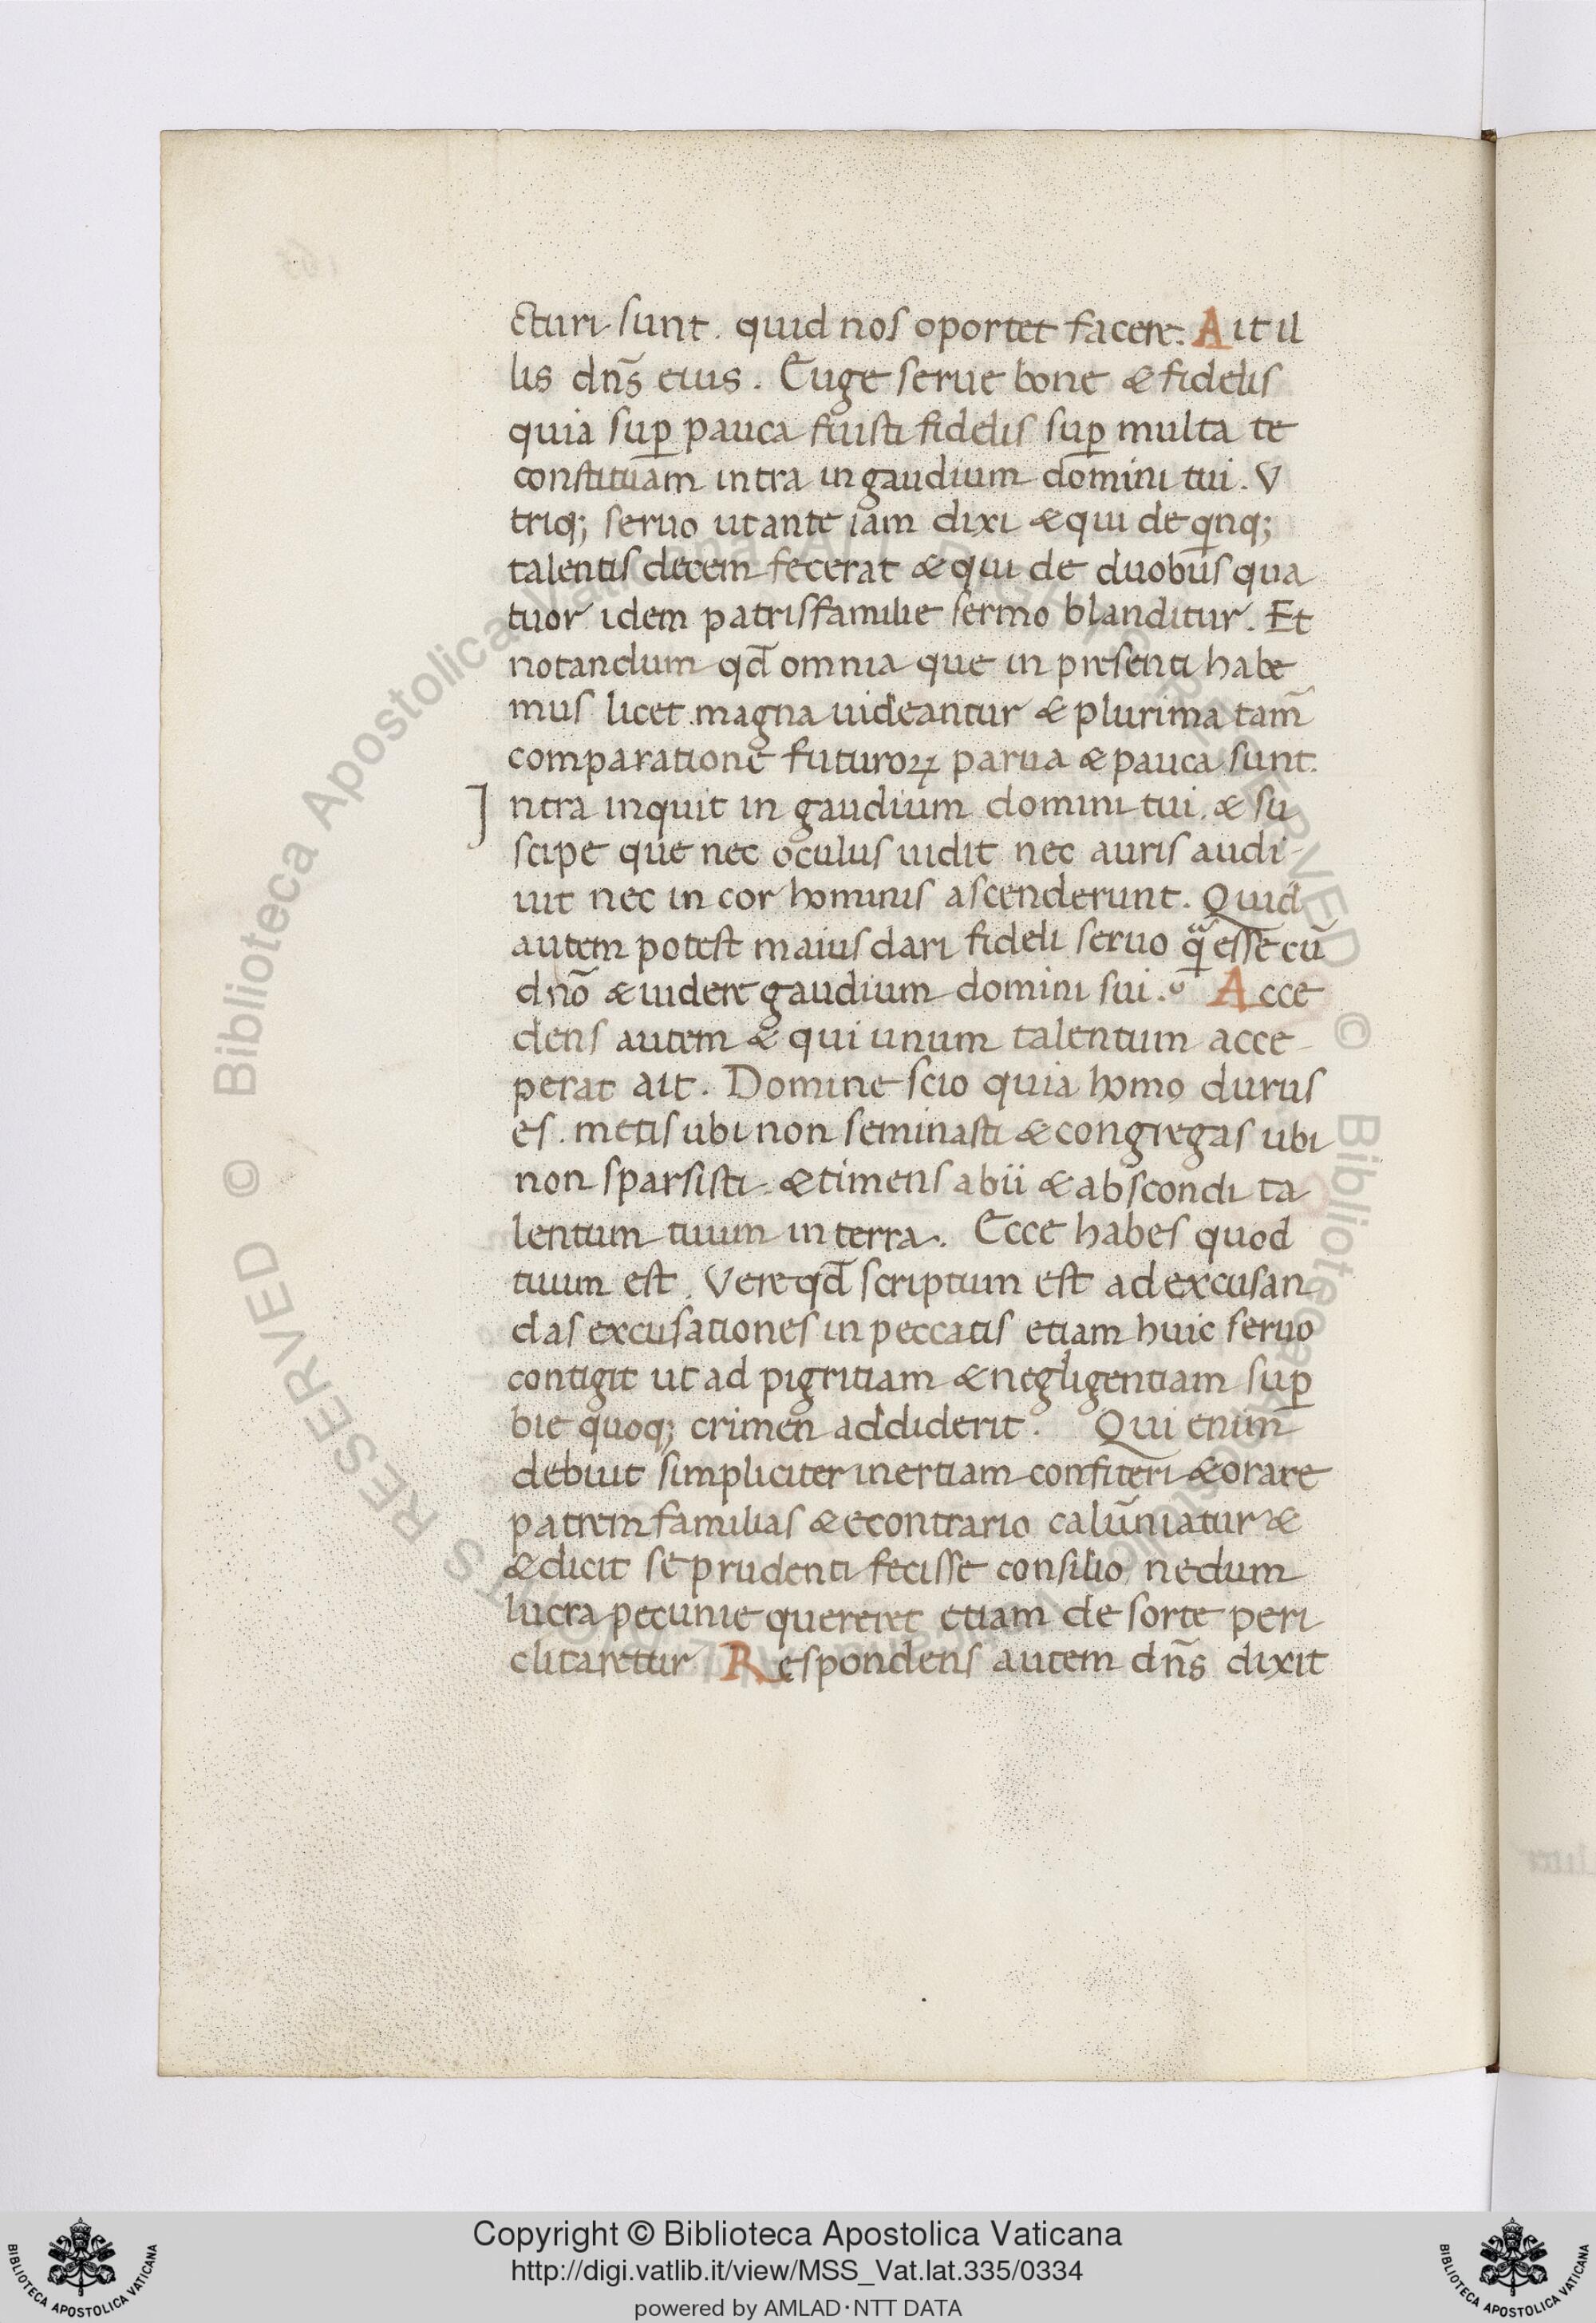 cturi sunt. quid nos oportet facere. Ait il
lis dn̄s eius. Euge serue bone & fidelis
quia suꝑ pauca fuisti fidelis suꝑ multa te
constituam intra in gaudium domini tui. V
triq; seruo ut ante iam dixi & qui de qinq;
talentis decem fecerat & qui de duobus qua
tuor idem patrisfamilie sermo blanditur. Et
notandum qd̄ omnia que in presenti habe
mus licet magna uideantur & plurima tam̄
comparatione futuroꝝ parua & pauca sunt.
Intra inquit in gaudium domini tui. & su
scipe que nec oculus uidit nec auris audi
uit nec in cor hominis ascenderunt. Quid
autem potest maius dari fideli seruo qᵃ̄ esse cū
dn̄o & uidere gaudium domini sui. Acce
dens autem & qui unum talentum acce
perat ait. Domine scio quia homo durus
es. metis ubi non seminasti & congregas ubi
non sparsisti & timens abii & abscondi ta
lentum tuum in terra. Ecce habes quod
tuum est. Vere qd̄ scriptum est ad excusan
das excusationes in peccatis etiam huic seruo
contigit ut ad pigritiam & negligentiam suꝑ
bie quoq; crimen addiderit. Qui enim
debuit simpliciter inertiam confiteri & orare
patremfamilias & econtrario calūniatur &
& dicit se prudenti fecisse consilio nedum
lucra pecunie quereret etiam de sorte peri
clitaretur Respondens autem dn̄s dixit
© Biblioteca Apostolica Vaticana ALL RIGHTS RESERVED
Copyright © Biblioteca Apostolica Vaticana
http://digi.vatlib.it/view/MSS_Vat.lat.335/0334
powered by AMLAD·NTT DATA
BIBLIOTECA APOSTOLICA VATICANA
BIBLIOTECA APOSTOLICA VATICANA